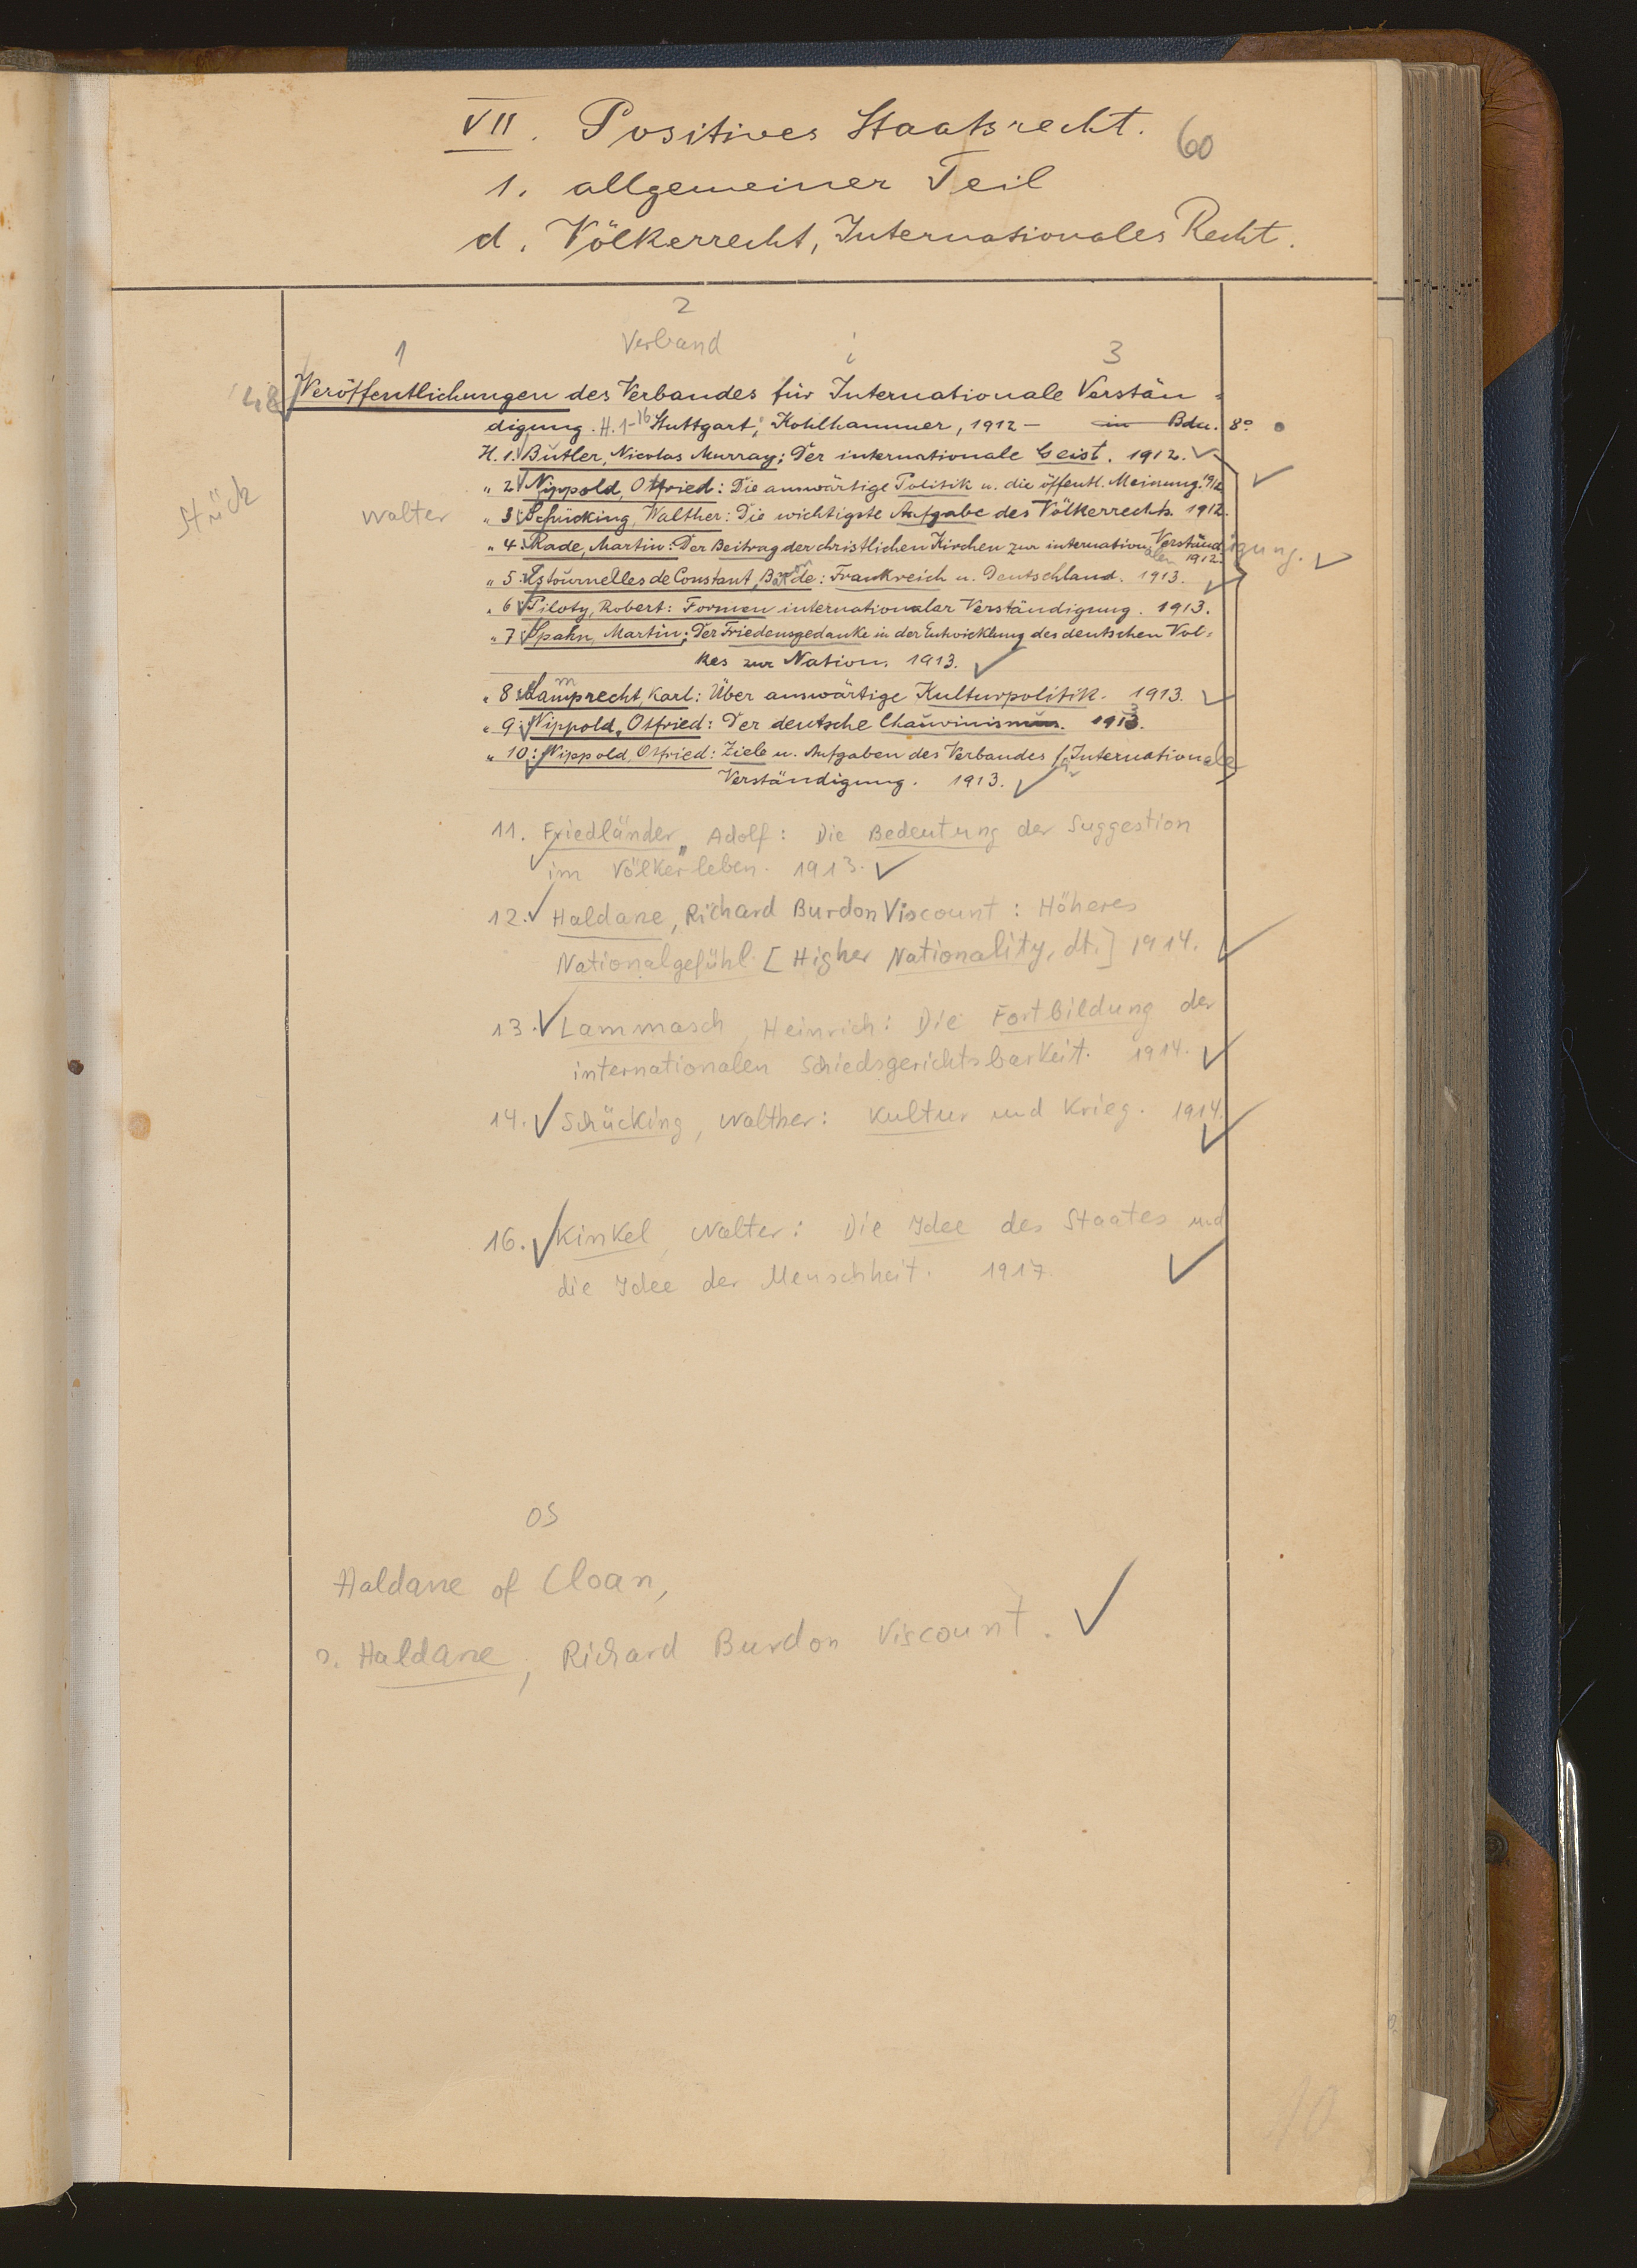 VII. Positives Staatsrecht. 60
1. allgemeiner Teil
d. Völkerrecht, Internationales Recht.
2
Verband
1 i 3
Veröffentlichungen des Verbandes für Internationale Verstän=
digung. H. 1-16 Stuttgart; Kohlhammer, 1912 - in Bdn. 8°
H. 1: Butler, Nicolas Murray: Der internationale Geist. 1912.
" 2: Nippold, Otfried: Die auswärtige Politik u. die öffentl. Meinung. 1912
Stück
Walter " 3: Schücking, Walther: Die wichtigste Aufgabe des Völkerrechts. 1912.
" 4: Rade, Martin: Der Beitrag der christlichen Kirchen zur internationalen Verständigung.
1912.
" 5: Estournelles de Constant, de: Frankreich u. Deutschland. 1913.
" 6: Piloty, Robert: Formen internationaler Verständigung. 1913.
" 7: Spahn, Martin: Der Friedensgedanke in der Entwicklung des deutschen Vol=
kes zur Nation. 1913.
" 8: Lamprecht, Karl: Über auswärtige Kulturpolitik. 1913.
" 9: Nippold, Otfried: Der deutsche Chauvinismus. 1913.
" 10: Nippold, Otfried: Ziele u. Aufgaben des Verbandes f. Internationale
Verständigung. 1913.
11. Friedländer, Adolf: Die Bedeutung der Suggestion
im Völkerleben. 1913.
12. Haldane, Richard Burdon Viscount: Höheres
Nationalgefühl [Higher Nationality, dt.] 1914.
13. Lammasch, Heinrich: Die Fortbildung der
internationalen Schiedsgerichtsbarkeit. 1914.
14. Schücking, Walther: Kultur und Krieg. 1914.
16. Kinkel, Walter: Die Idee des Staates und
die Idee der Menschheit. 1917.
OS
Haldane of Cloan,
s. Haldane, Richard Burdon Viscount.